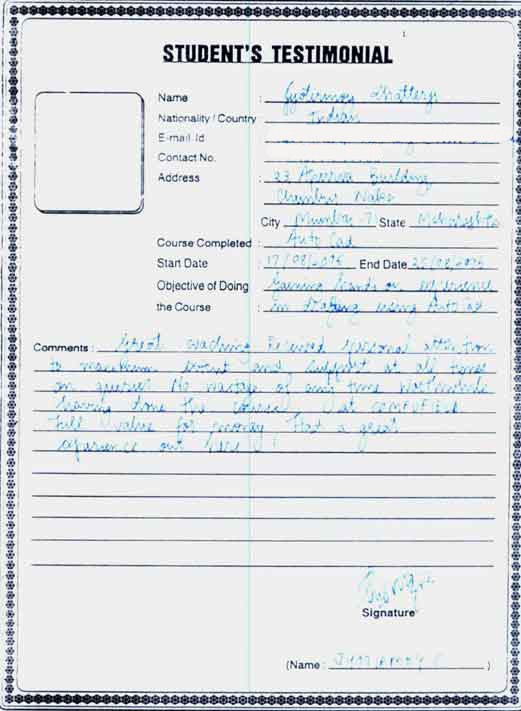 STUDENT'S TESTIMONIAL
Name :
Nationality / Country : Indian
E-mail Id
Contact No.
Address : 33 Building
Chembur Naka
City Mumbai - 71 State Maharashtra
Course Completed : Auto Cad
Start Date : End Date
Objective of Doing : Gaining hands on experience
the Course : in drafting using AutoCad
Comments : Great coaching. Received personal attention
to maximum extent and support at all times
on queries. No wastage of any time. Worthwhile
having done the course at
Full value for money. Had a great
experience out here!
Signature
(Name : )